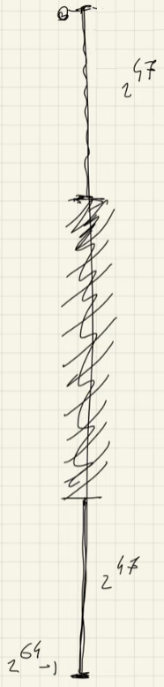 0
2^47
2^47
2^64-1